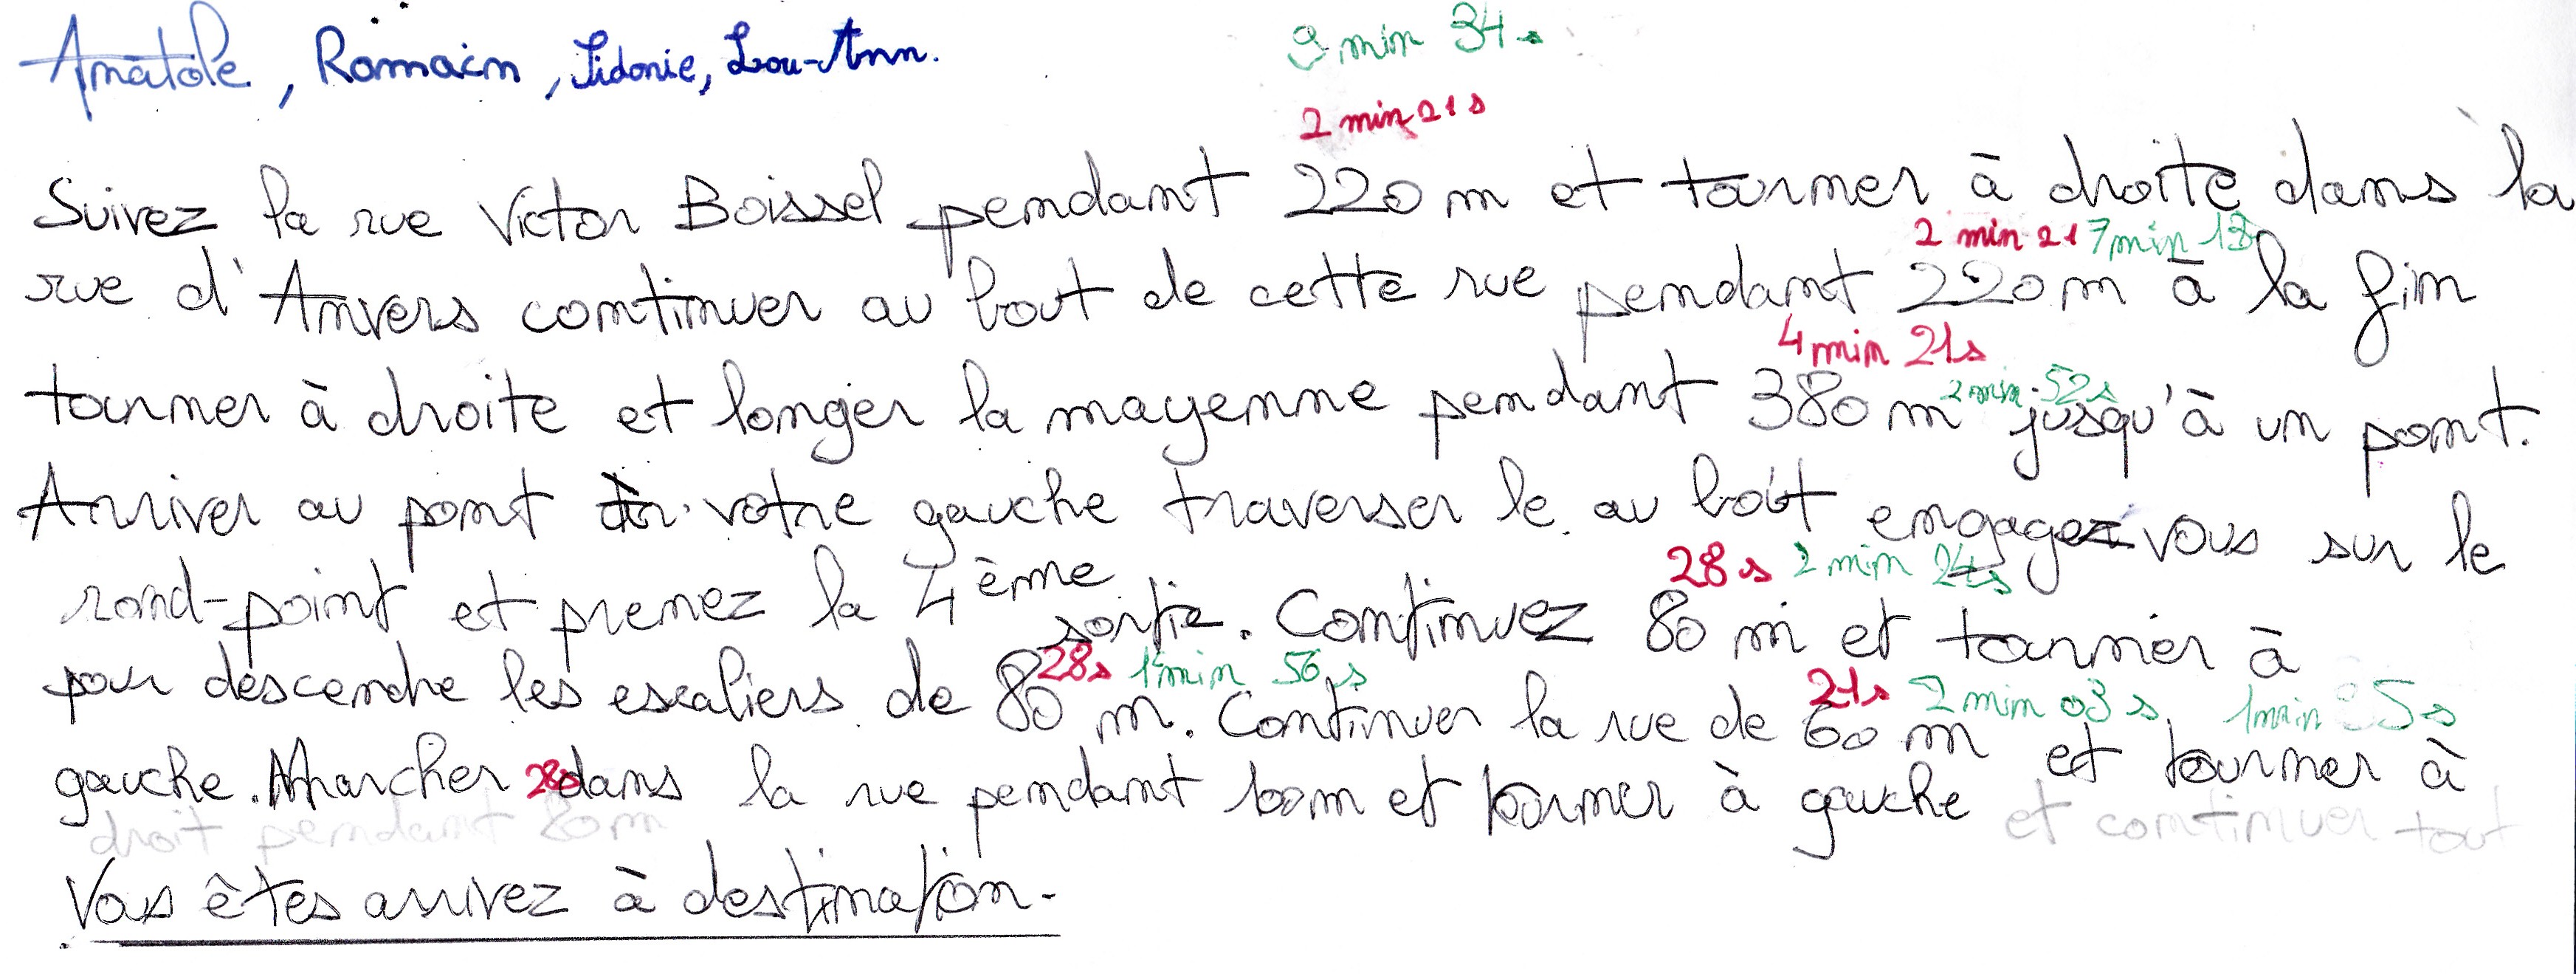 Anatole, Romain, Sidonie, Lou-Ann.
9 min 34 s
2 min 21 s
Suivez la rue Victor Boissel pendant 220 m et tourner à droite dans la
2 min 21 7 min 13
rue d'Anvers continuer au bout de cette rue pendant 220 m à la fin
4 min 21s
2 min 52s
tourner à droite et longer la mayenne pendant 380 m jusqu'à un pont.
Arriver au pont à votre gauche traverser le au bout engagez vous sur le
28s 2 min 24s
rond-point et prenez la 4ème sortie. Continuez 80 m et tourner à
28s 1 min 56 s
21s 2 min 03 s 1 min 35s
pour descendre les escaliers de 80 m. Continuer la rue de 60 m et tourner à
28s
gauche. Marcher dans la rue pendant et tourner à gauche et continuer tout
droit pendant 80m
Vous êtes arrivez à destination.